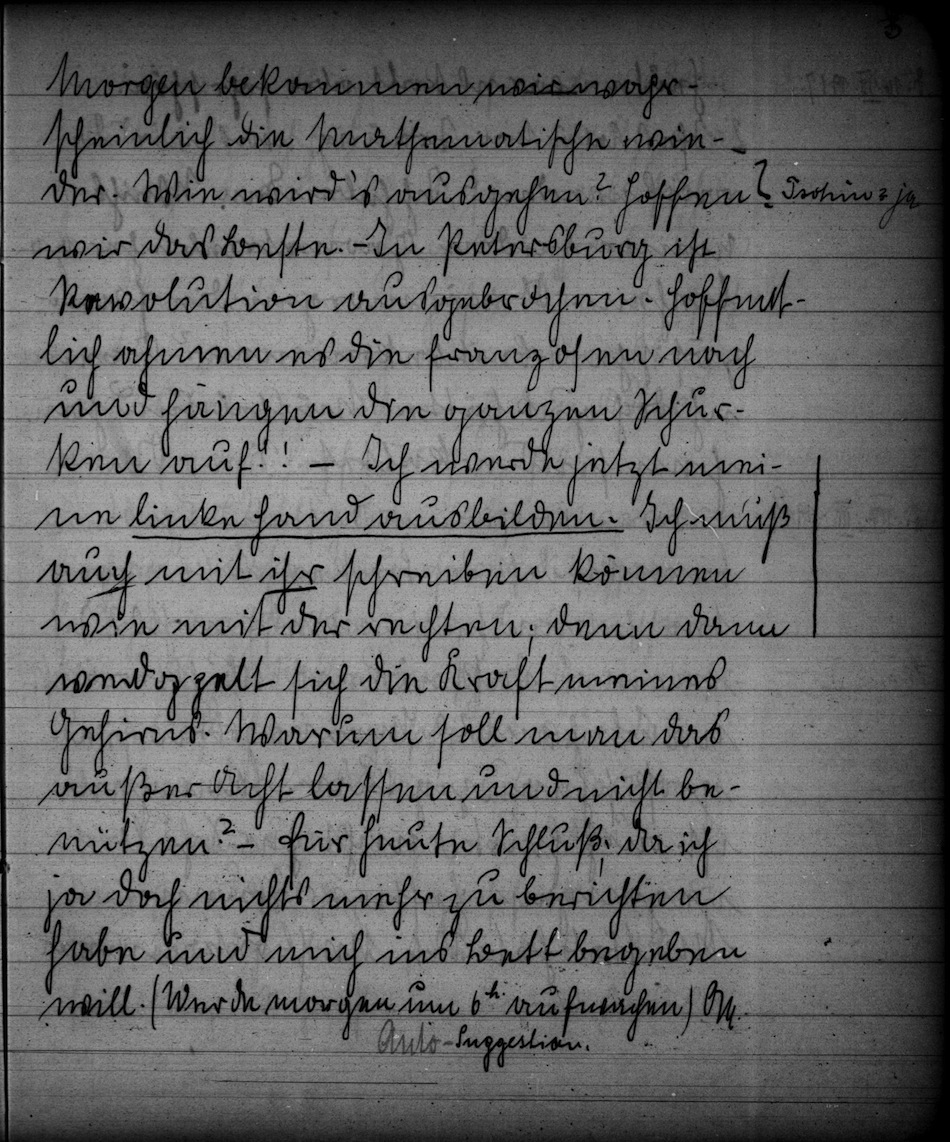 3
Morgen bekommen wir wahr-
scheinlich die Mathematische wie-
der. Wie wird's ausgehen? Hoffen
wir das Beste. – In Petersburg ist
Revolution ausgebrochen. Hoffent-
lich ahmen es die Franzosen nach
und hängen die ganzen Schur-
ken auf!! – Ich werde jetzt mei-
ne linke Hand ausbilden. Ich muß
auch mit ihr schreiben können
wie mit der rechten; denn dann
verdoppelt sich die Kraft meines
Gehirns. Warum soll man das
außer Acht lassen und nicht be-
nützen? – Für heute Schluß; da ich
ja doch nichts mehr zu berichten
habe und mich ins Bett begeben
will. (Werde morgen um 6h aufwachen)
Auto-Suggestion.